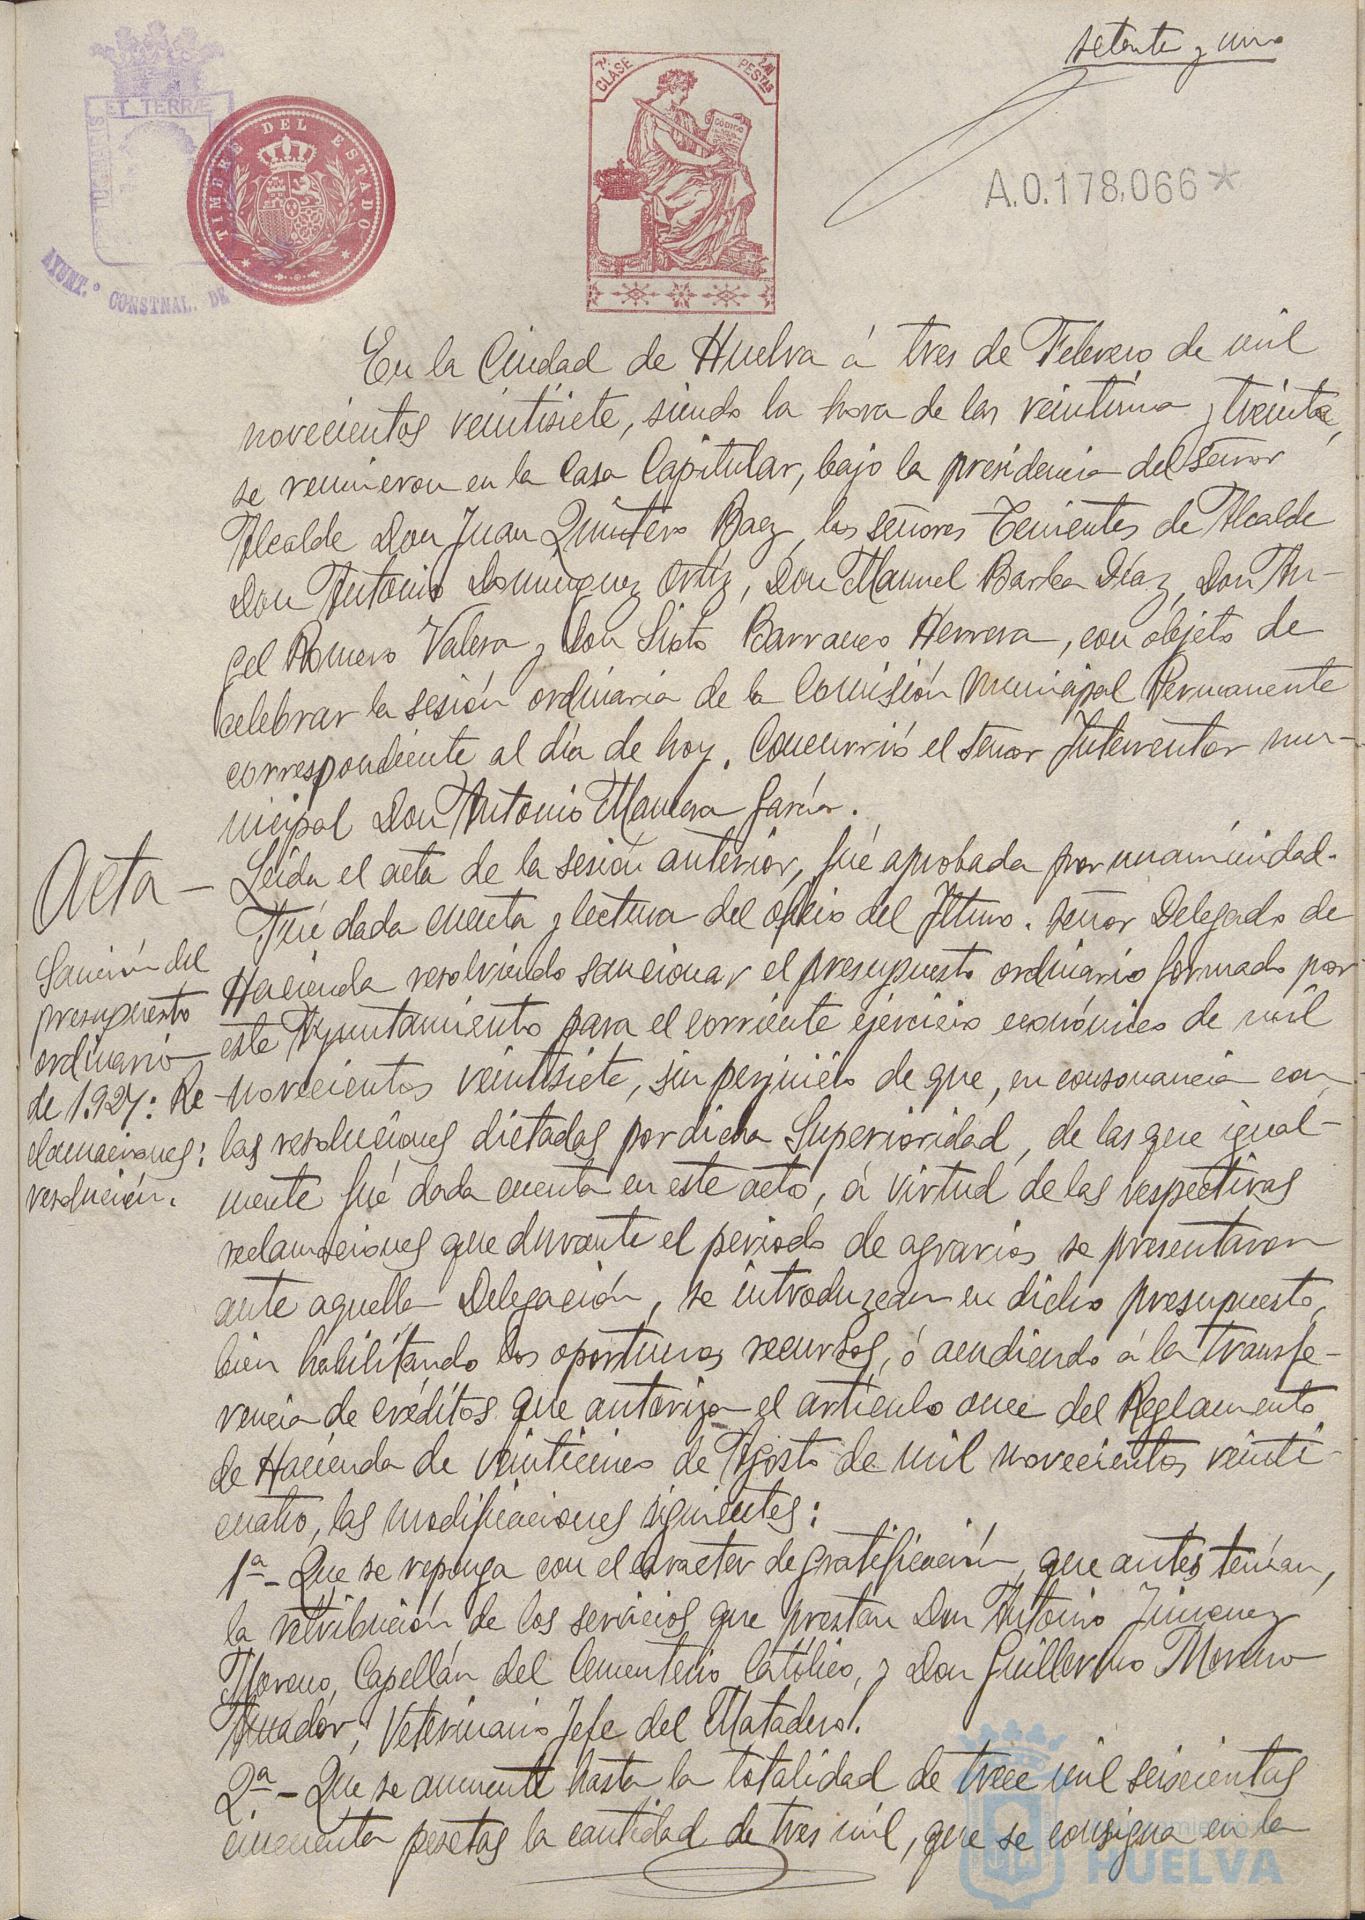 setenta y uno
ET TERRÆ
AYUNT.º CONSTNAL. DE
TIMBRE DEL ESTADO
7ª CLASE
PESTAS
CODIGO
A.0.178,066*
En la Ciudad de Huelva á tres de Febrero de mil
novecientos veintisiete, siendo la hora de las veintiuna y treinta,
se reunieron en la Casa Capitular, bajo la presidencia del Señor
Alcalde Don Juan Quintero Baez, los señores Tenientes de Alcalde
Don Antonio Dominguez Ortíz, Don Manuel Barba Díaz, Don An-
gel Romero Valera y Don Sixto Barranco Herrera, con objeto de
celebrar la sesión ordinaria de la Comisión Municipal Permanente
correspondiente al día de hoy. Concurrió el señor Interventor mu-
nicipal Don Antonio Mancera García.
Acta — Leída el acta de la sesión anterior, fué aprobada por unanimidad.
Fué dada cuenta y lectura del oficio del Iltmo. señor Delegado de
Sanción del
presupuesto
ordinario
de 1.927: Re
clamaciones:
resolución.
Hacienda resolviendo sancionar el presupuesto ordinario formado por
este Ayuntamiento para el corriente ejercicio económico de mil
novecientos veintisiete, sin perjuicio de que, en consonancia con
las resoluciones dictadas por dicha Superioridad, de las que igual-
mente fué dada cuenta en este acto, á virtud de las respectivas
reclamaciones que durante el periodo de agravios se presentaron
ante aquella Delegación, se introduzcan en dicho presupuesto,
bien habilitando los oportunos recursos, ó acudiendo á la transfe-
rencia de créditos que autoriza el artículo once del Reglamento
de Hacienda de veinticinco de Agosto de mil novecientos veinti
cuatro, las modificaciones siguientes:
1ª - Que se reponga con el caracter de gratificación, que antes tenían,
la retribución de los servicios que prestan Don Antonio Jimenez
Moreno, Capellán del Cementerio Católico, y Don Guillermo Moreno
Amador, Veterinario Jefe del Matadero.
2ª - Que se aumente hasta la totalidad de trece mil seiscientas
cincuenta pesetas la cantidad de tres mil, que se consigna en la
HUELVA